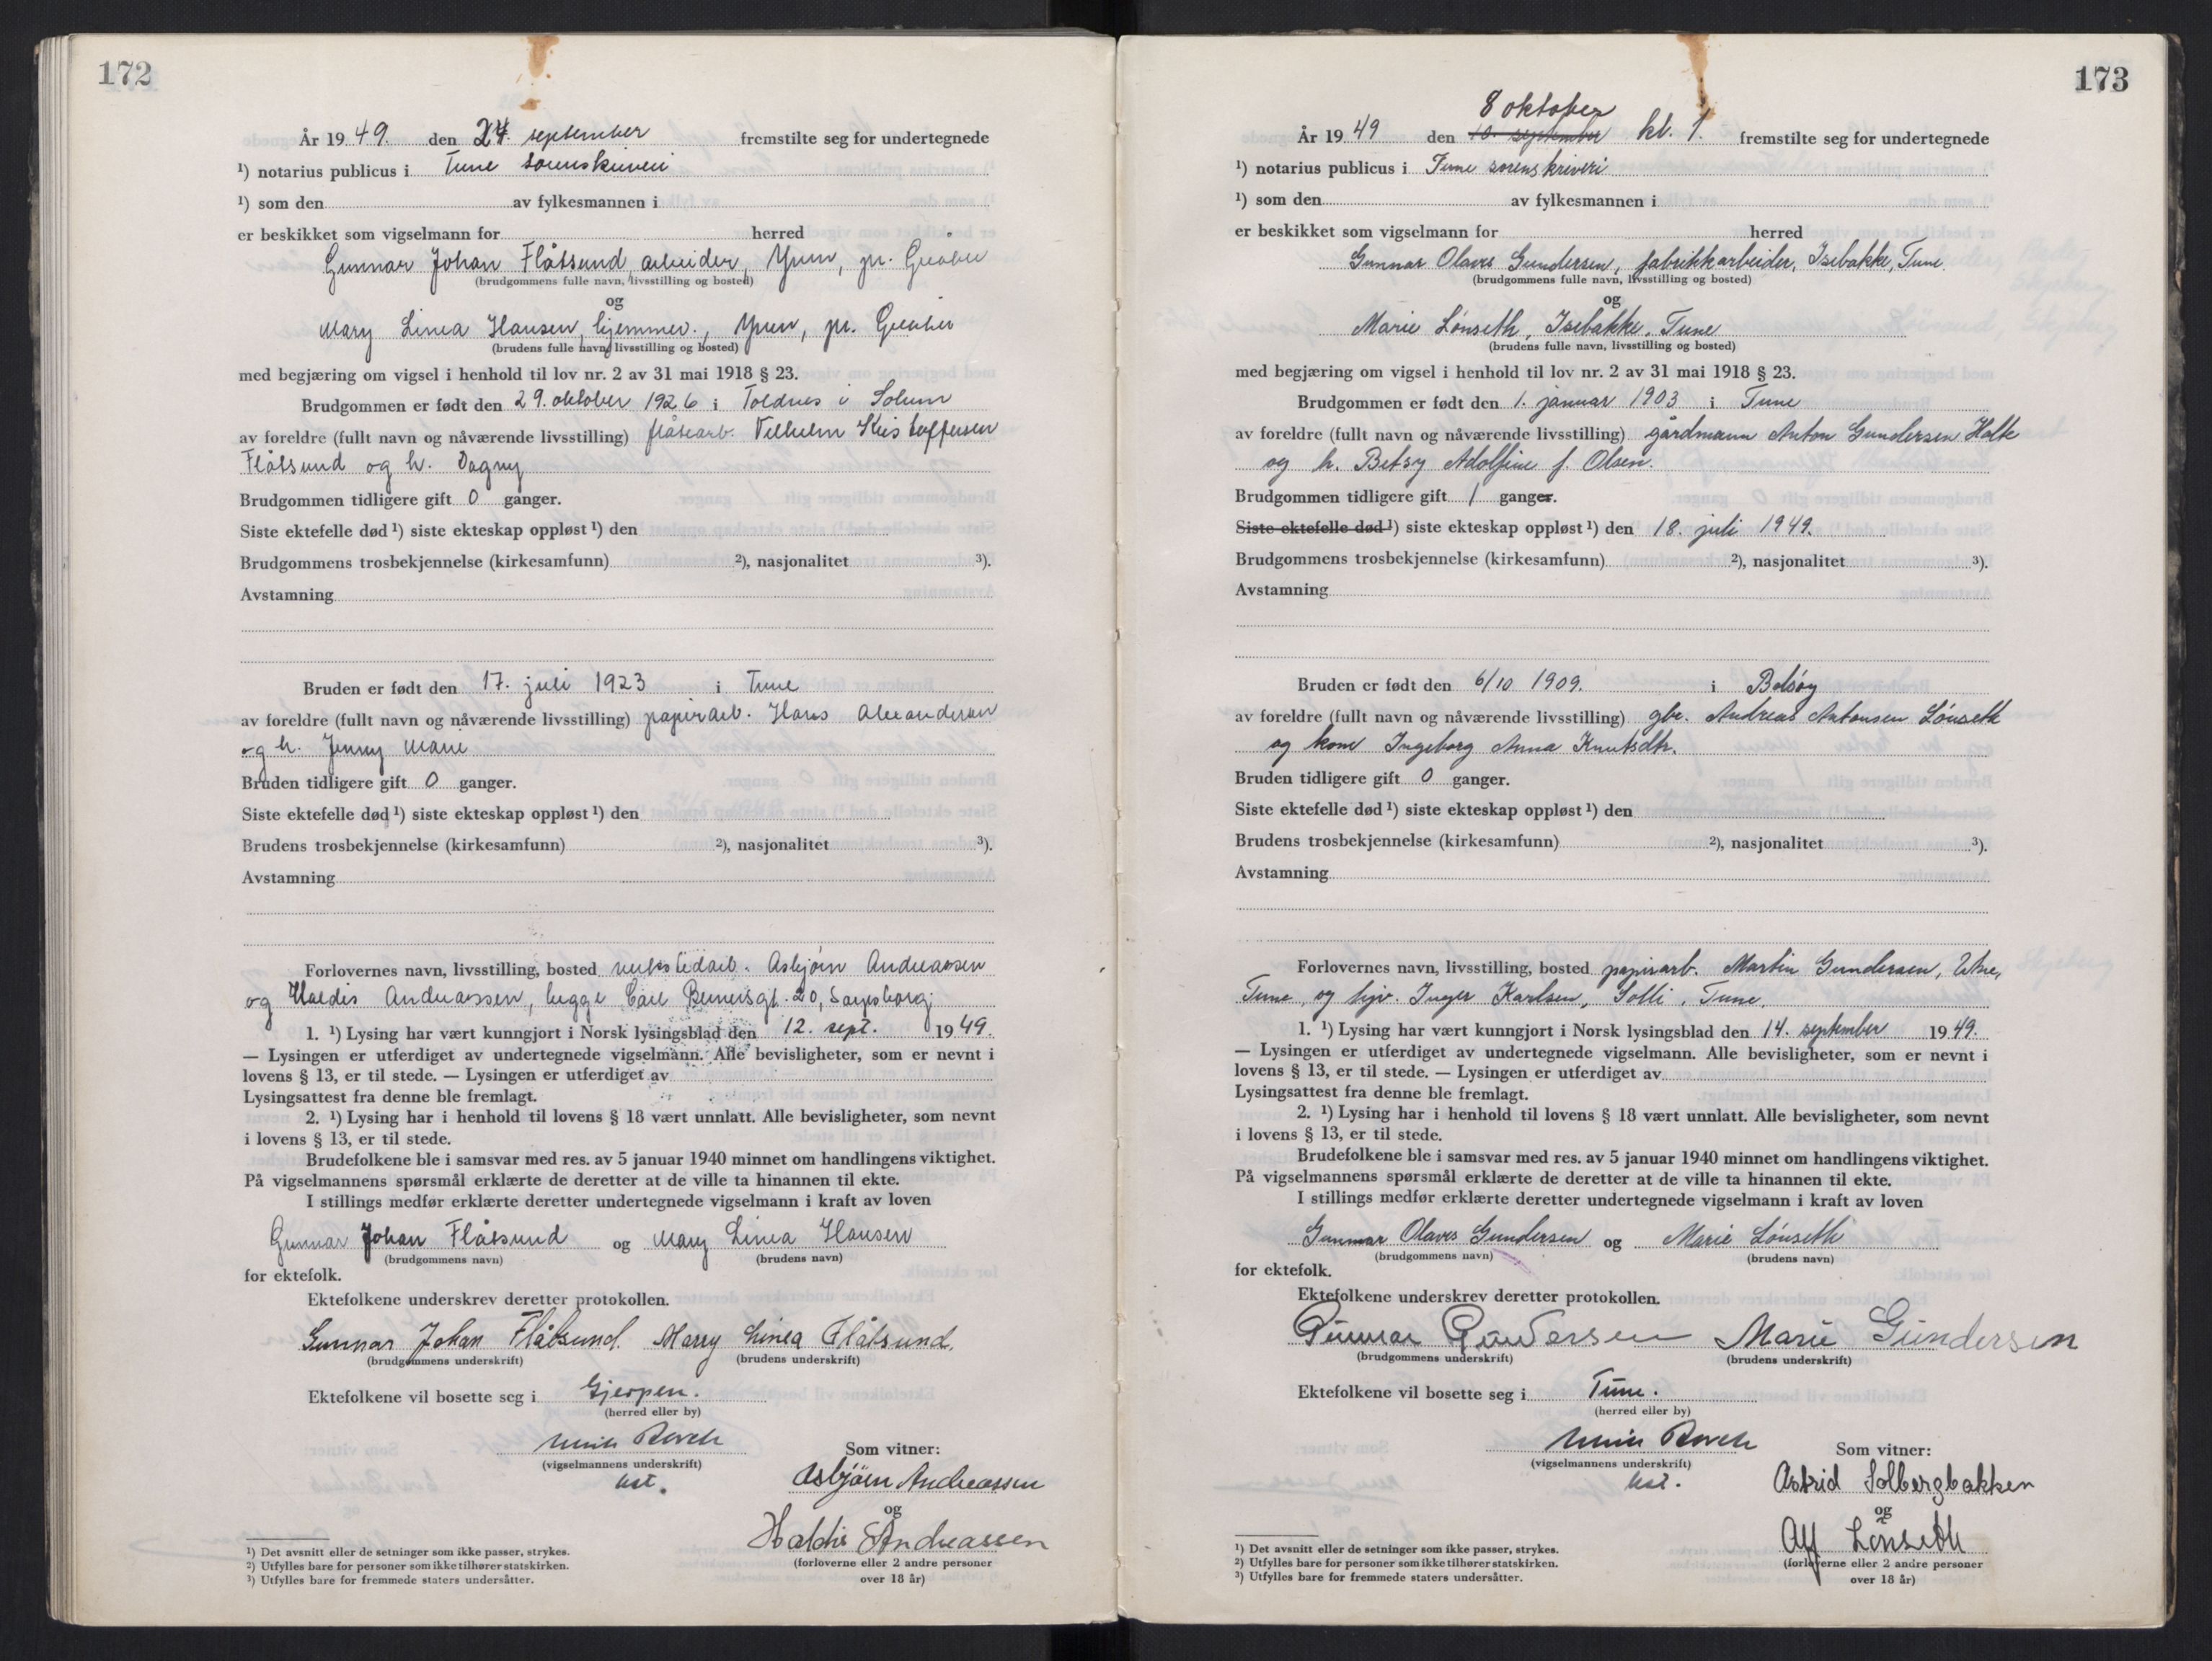 172
År 19 49. den 24. september fremstilte seg for undertegnede
¹) notarius publicus i Tune sorenskriveri
¹) som den av fylkesmannen i
er beskikket som vigselmann for herred
Gunnar Johan Flåtsund, arbeider, Yven, pr. Greåker
(brudgommens fulle navn, livsstilling og bosted)
og
Mary Linea Hansen, hjemmev., Yven, pr. Greåker
(brudens fulle navn, livsstilling og bosted)
med begjæring om vigsel i henhold til lov nr. 2 av 31 mai 1918 § 23.
Brudgommen er født den 29. oktober 1926 i Toldnes i Solum
av foreldre (fullt navn og nåværende livsstilling) flåtearb. Vilhelm Kristoffersen
Flåtsund og h. Dagny
Brudgommen tidligere gift 0 ganger.
Siste ektefelle død ¹) siste ekteskap oppløst ¹) den
Brudgommens trosbekjennelse (kirkesamfunn) ²), nasjonalitet ³).
Avstamning
Bruden er født den 17. juli 1923 i Tune
av foreldre (fullt navn og nåværende livsstilling) papirarb. Hans Alexandersen
og h. Jenny Marie
Bruden tidligere gift 0 ganger.
Siste ektefelle død ¹) siste ekteskap oppløst ¹) den
Brudens trosbekjennelse (kirkesamfunn) ²), nasjonalitet ³).
Avstamning
Forlovernes navn, livsstilling, bosted verkstedarb. Asbjørn Andreassen
og Haldis Andreassen, begge Carl Bernersgt. 20, Sarpsborg.
1. ¹) Lysing har vært kunngjort i Norsk lysingsblad den 12. sept. 1949.
— Lysingen er utferdiget av undertegnede vigselmann. Alle bevisligheter, som er nevnt i
lovens § 13, er til stede. — Lysingen er utferdiget av
Lysingsattest fra denne ble fremlagt.
2. ¹) Lysing har i henhold til lovens § 18 vært unnlatt. Alle bevisligheter, som nevnt
i lovens § 13, er til stede.
Brudefolkene ble i samsvar med res. av 5 januar 1940 minnet om handlingens viktighet.
På vigselmannens spørsmål erklærte de deretter at de ville ta hinannen til ekte.
I stillings medfør erklærte deretter undertegnede vigselmann i kraft av loven
Gunnar Johan Flåtsund og Mary Linea Hansen
(brudgommens navn) (brudens navn)
for ektefolk.
Ektefolkene underskrev deretter protokollen.
Gunnar Johan Flåtsund. Marry Linea Flåtsund.
(brudgommens underskrift) (brudens underskrift)
Ektefolkene vil bosette seg i Gjerpen.
(herred eller by)
(vigselmannens underskrift)
Som vitner:
Asbjörn Andreassen
og
Haldis Andreassen
(forloverne eller 2 andre personer
over 18 år)
¹) Det avsnitt eller de setninger som ikke passer, strykes.
²) Utfylles bare for personer som ikke tilhører statskirken.
³) Utfylles bare for fremmede staters undersåtter.
173
8 oktober
År 19 49 den 10. september kl. 1. fremstilte seg for undertegnede
¹) notarius publicus i Tune sorenskriveri
¹) som den av fylkesmannen i
er beskikket som vigselmann for herred
Gunnar Olaves Gundersen, fabrikkarbeider, Isebakke, Tune
(brudgommens fulle navn, livsstilling og bosted)
og
Marie Lönseth, Isebakke, Tune
(brudens fulle navn, livsstilling og bosted)
med begjæring om vigsel i henhold til lov nr. 2 av 31 mai 1918 § 23.
Brudgommen er født den 1. januar 1903 i Tune
av foreldre (fullt navn og nåværende livsstilling) gårdmann Anton Gundersen Holte
og h. Betsy Adolfine f. Olsen.
Brudgommen tidligere gift 1 ganger.
Siste ektefelle død ¹) siste ekteskap oppløst ¹) den 18. juli 1949.
Brudgommens trosbekjennelse (kirkesamfunn) ²), nasjonalitet ³).
Avstamning
Bruden er født den 6/10 1909. i Bolsøy
av foreldre (fullt navn og nåværende livsstilling) gbr. Andreas Antonsen Lönseth
og kone Ingeborg Anna Knutsdtr.
Bruden tidligere gift 0 ganger.
Siste ektefelle død ¹) siste ekteskap oppløst ¹) den
Brudens trosbekjennelse (kirkesamfunn) ²), nasjonalitet ³).
Avstamning
Forlovernes navn, livsstilling, bosted papirarb. Martin Gundersen,
Tune, og hjv. Inger Karlsen, Solli, Tune.
1. ¹) Lysing har vært kunngjort i Norsk lysingsblad den 14. september 1949.
— Lysingen er utferdiget av undertegnede vigselmann. Alle bevisligheter, som er nevnt i
lovens § 13, er til stede. — Lysingen er utferdiget av
Lysingsattest fra denne ble fremlagt.
2. ¹) Lysing har i henhold til lovens § 18 vært unnlatt. Alle bevisligheter, som nevnt
i lovens § 13, er til stede.
Brudefolkene ble i samsvar med res. av 5 januar 1940 minnet om handlingens viktighet.
På vigselmannens spørsmål erklærte de deretter at de ville ta hinannen til ekte.
I stillings medfør erklærte deretter undertegnede vigselmann i kraft av loven
Gunnar Olaves Gundersen og Marie Lönseth
(brudgommens navn) (brudens navn)
for ektefolk.
Ektefolkene underskrev deretter protokollen.
Gunnar Gundersen Marie Gundersen
(brudgommens underskrift) (brudens underskrift)
Ektefolkene vil bosette seg i Tune.
(herred eller by)
(vigselmannens underskrift)
Som vitner:
Astrid Solbergbakken
og
Alf Lönseth
(forloverne eller 2 andre personer
over 18 år)
¹) Det avsnitt eller de setninger som ikke passer, strykes.
²) Utfylles bare for personer som ikke tilhører statskirken.
³) Utfylles bare for fremmede staters undersåtter.